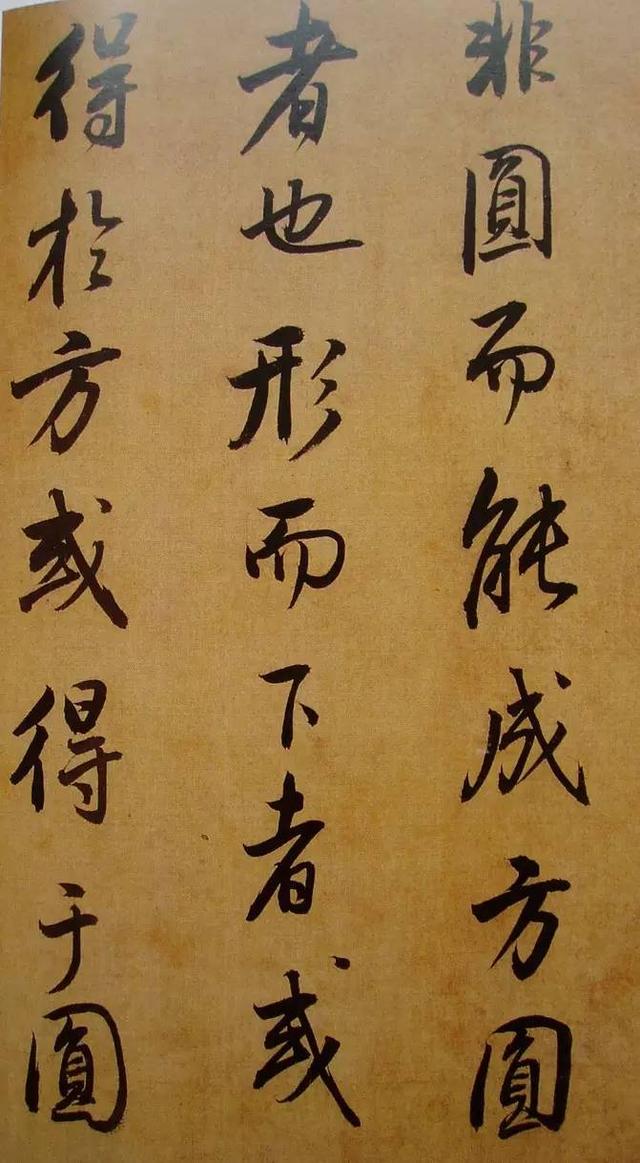 非圓而能成方圓
者也形而下者或
得於方或得于圓